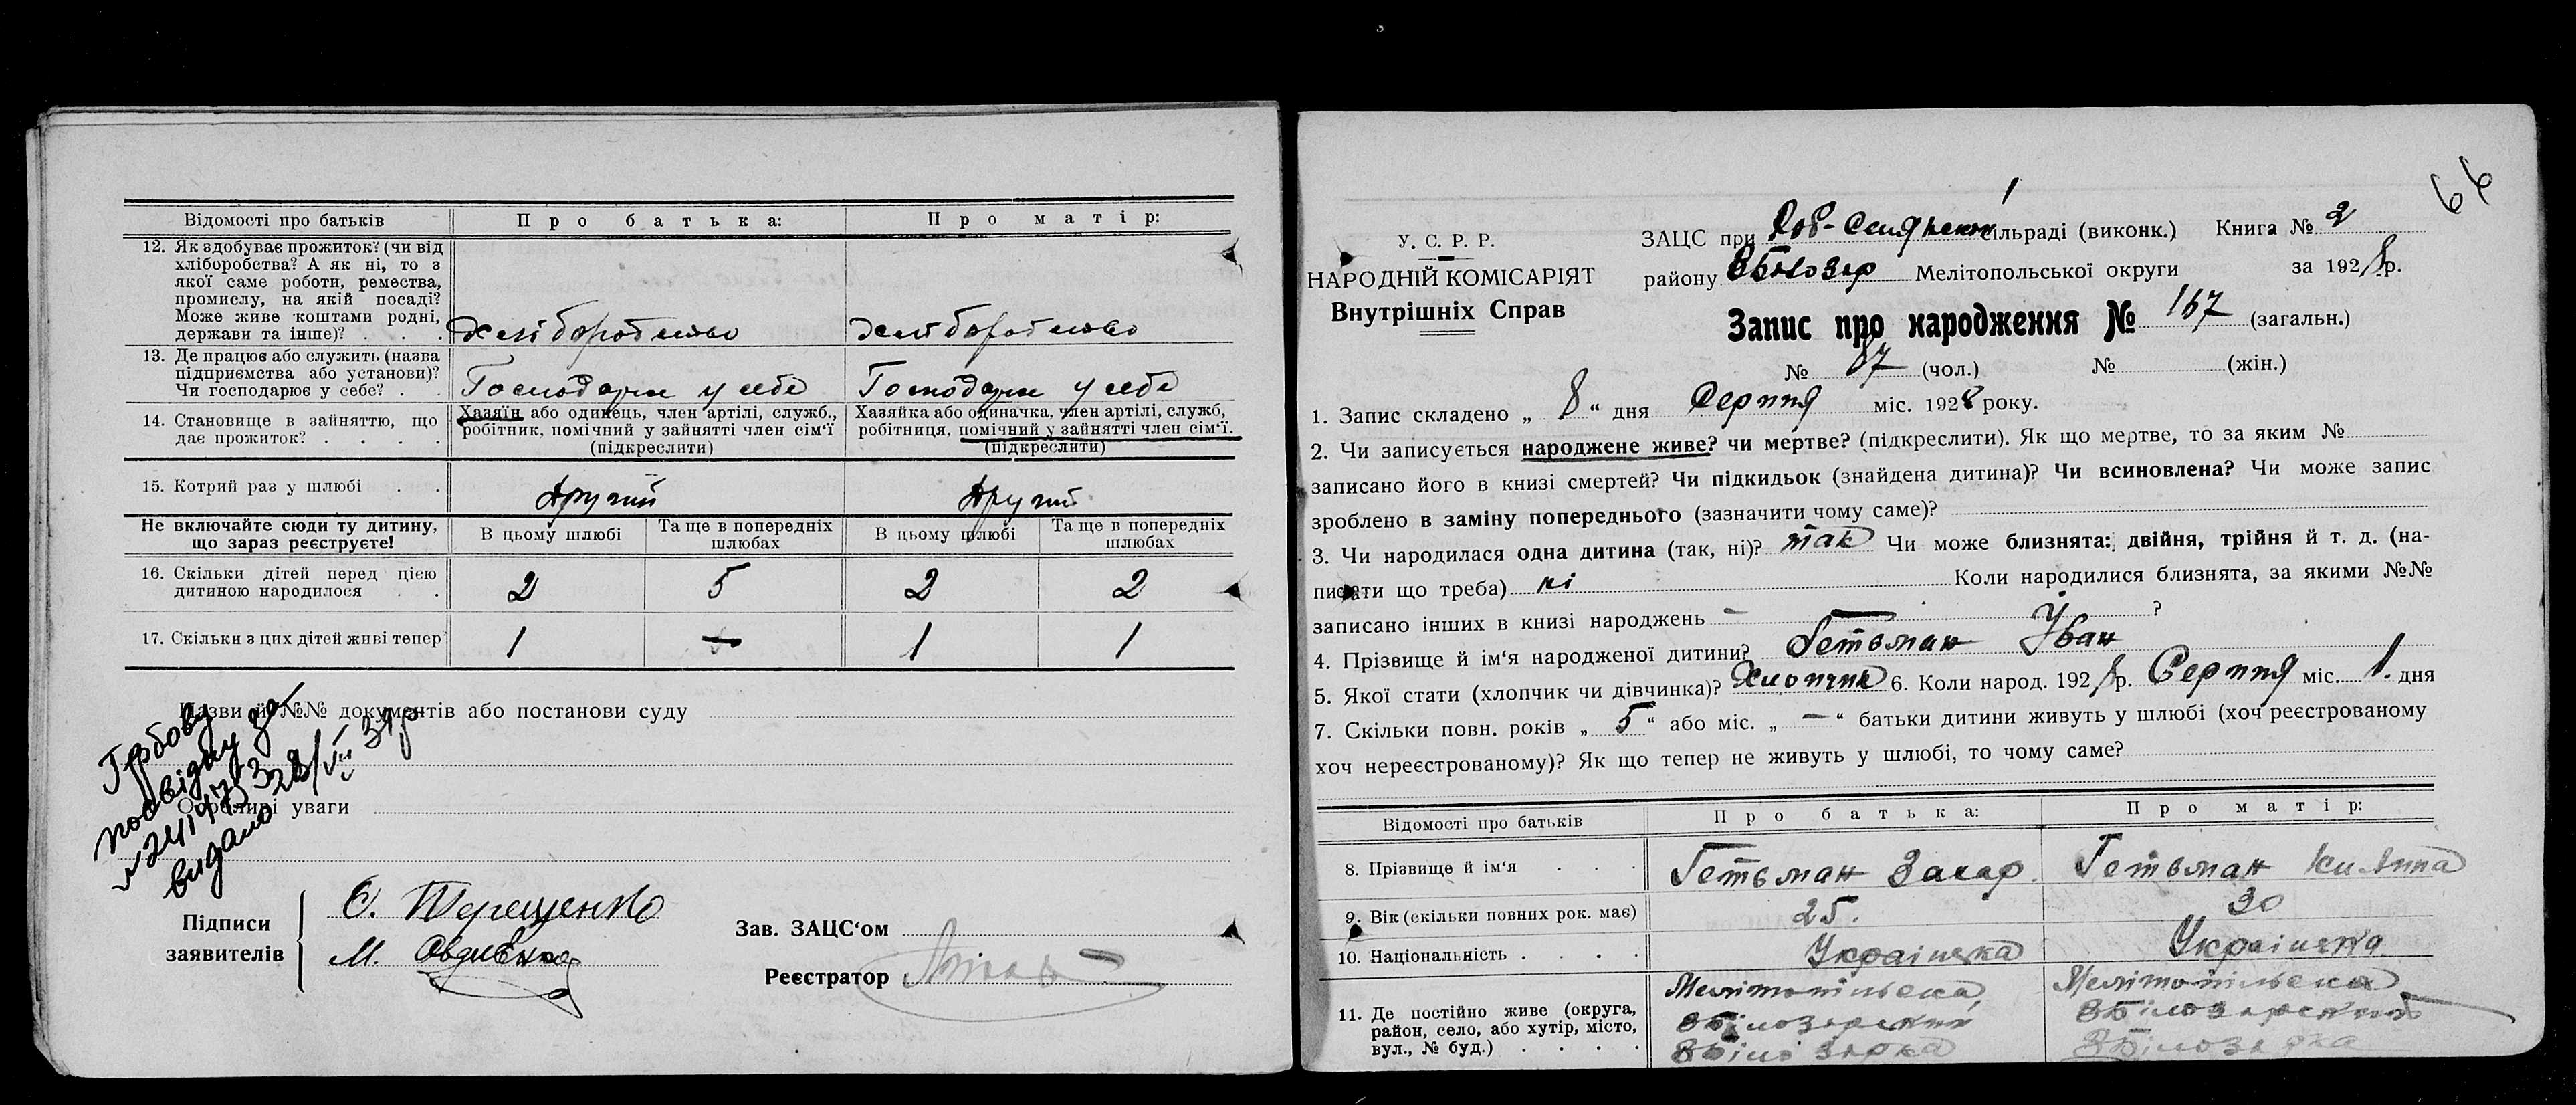 Відомості про батьків Про батька: Про матір:
12. Як здобуває прожиток? (чи від
хліборобства? А як ні, то з
якої саме роботи, ремества,
промислу, на якій посаді?
Може живе коштами родні,
держави та інше)? . . . хліборобство хліборобство
13. Де працює або служить (назва
підприємства або установи)?
Чи господарює у себе? . . Господарює у себе Господарює у себе
14. Становище в зайняттю, що
дає прожиток? . . . .
Хазяїн або одинець, член артілі, служб.,
робітник, помічний у зайнятті член сім'ї
(підкреслити)
Хазяйка або одиначка, член артілі, служб,
робітниця, помічний у зайнятті член сім'ї.
(підкреслити)
15. Котрий раз у шлюбі . . другий другий
Не включайте сюди ту дитину,
що зараз реєструєте!
В цьому шлюбі Та ще в попередніх шлюбах В цьому шлюбі Та ще в попередніх шлюбах
16. Скільки дітей перед цією
дитиною народилося . . 2 5 2 2
17. Скільки з цих дітей живі тепер 1 — 1 1
Назви й №№ документів або постанови суду
Особливі уваги
Гербову
посвідку за
видано 28/VII 39р
Підписи
заявителів
С. Терещенко
М. Авдієнко
Зав. ЗАЦС'ом
Реєстратор
66
У. С. Р. Р.
НАРОДНІЙ КОМІСАРІЯТ
Внутрішніх Справ
ЗАЦС при сільраді (виконк.) Книга № 2
району Мелітопольської округи за 1928 р.
Запис про народження № 167 (загальн.)
№ 87 (чол.) № (жін.)
1. Запис складено „ 8 “ дня Серпня міс. 1928 року.
2. Чи записується народжене живе? чи мертве? (підкреслити). Як що мертве, то за яким №
записано його в книзі смертей? Чи підкидьок (знайдена дитина)? Чи всиновлена? Чи може запис
зроблено в заміну попереднього (зазначити чому саме)?
3. Чи народилася одна дитина (так, ні)? так Чи може близнята: двійня, трійня й т. д. (на-
писати що треба) ні Коли народилися близнята, за якими №№
записано інших в книзі народжень — ?
4. Прізвище й ім'я народженої дитини? Гетьман Іван
5. Якої стати (хлопчик чи дівчинка)? Хлопчик 6. Коли народ. 1928 р. Серпня міс. 1. дня
7. Скільки повн. років „ 5 “ або міс. „ — “ батьки дитини живуть у шлюбі (хоч реєстрованому
хоч нереєстрованому)? Як що тепер не живуть у шлюбі, то чому саме?
Відомості про батьків Про батька: Про матір:
8. Прізвище й ім'я . . . Гетьман Захар Гетьман
9. Вік (скільки повних рок. має) 25. 30
10. Національність . . . . Українка Українка
11. Де постійно живе (округа,
район, село, або хутір, місто,
вул., № буд.) . . . .
Мелітопільська Мелітопільська
ВБілозерський ВБілозерський
ВБілозерка ВБілозерка